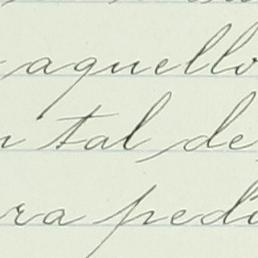 aquello
tal de
ra pedi